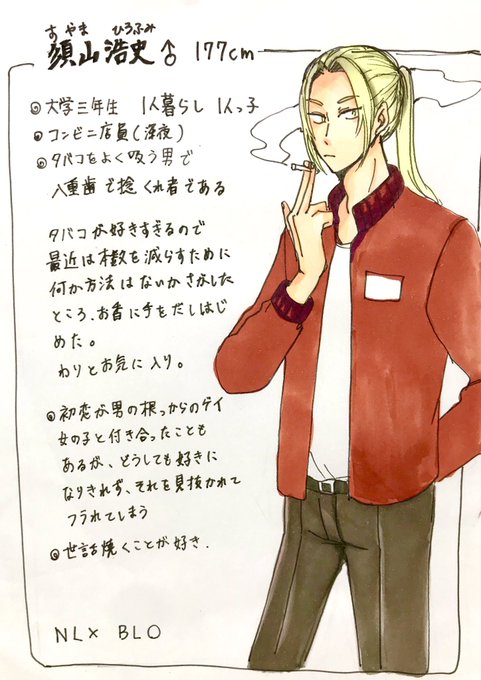 すやま ひろふみ
須山浩史♂ 177cm
◎大学三年生 1人暮らし 1人っ子
◎コンビニ店員(深夜)
◎タバコをよく吸う男で
八重歯で捻くれ者である
タバコが好きすぎるので
最近は本数を減らすために
何か方法はないかさがした
ところ、お香に手をだしはじ
めた。
わりとお気に入り。
◎初恋が男の根っからのゲイ
女の子と付き合ったことも
あるが、どうしても好きに
なりきれず、それを見抜かれて
フラれてしまう
◎世話焼くことが好き.
NL× BLO